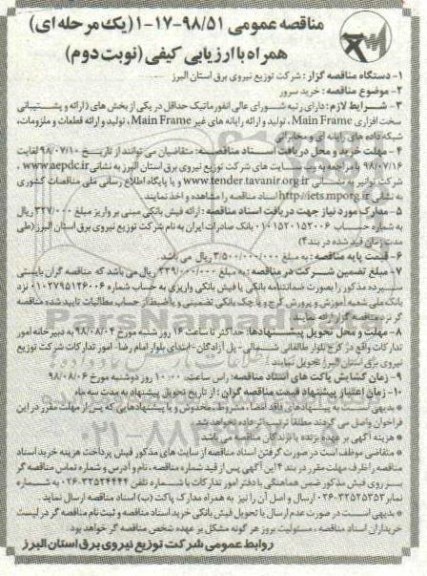 مناقصه عمومی ۹۸/۵۱-۱۷-۱(یک مرحله ای)
همراه با ارزیابی کیفی(نوبت دوم)
۱- دستگاه مناقصه گزار: شرکت توزیع نیروی برق استان البرز
۲- موضوع مناقصه: خرید سرور
۳- شرایط لازم: دارای رتبه شورای عالی انفورماتیک حداقل در یکی از بخش های (ارائه و پشتیبانی
سخت افزاری Main Frame، تولید و ارائه رایانه های غیر Main Frame، تولید و ارائه قطعات و ملزومات،
شبکه داده های رایانه ای و مخابراتی
۴- مهلت خرید و محل دریافت اسناد مناقصه: متقاضیان می توانند از تاریخ ۹۸/۰۷/۱۰ لغایت
۹۸/۰۷/۱۶ با مراجعه به وب سایت های شرکت توزیع نیروی برق استان البرز به نشانی www.aepdc.ir،
شرکت توانیر به نشانی www.tender.tavanir.org.ir و یا پایگاه اطلاع رسانی ملی مناقصات کشوری
به نشانی http://iets.mporg.ir اسناد مناقصه را مشاهده و اخذ نمایند
۵- مدارک مورد نیاز جهت دریافت اسناد مناقصه: ارائه فیش بانکی مبنی بر واریز مبلغ ۳۲۷/۰۰۰ ریال
به شماره حساب ۰۱۰۱۵۲۰۱۵۲۰۰۶ بانک صادرات ایران به نام شرکت توزیع نیروی برق استان البرز (طی
مدت زمان قید شده در بند۴)
۶- قیمت پایه مناقصه: به مبلغ ۳/۵۰۰/۰۰۰/۰۰۰ ریال می باشد.
۷- مبلغ تضمین شرکت در مناقصه: به مبلغ ۲۳۹/۰۰۰/۰۰۰ ریال می باشد که مناقصه گران بایستی
سپرده مذکور را بصورت ضمانتنامه بانکی یا فیش بانکی واریزی به حساب شماره ۰۱۰۲۷۹۵۱۲۶۰۰۶ نزد
بانک ملی شعبه آموزش و پرورش کرج و یا چک بانکی تضمینی و یا ضبط از حساب مطالبات تایید شده مناقصه
گر نزد مناقصه گزار ارائه نمایند
۸- مهلت و محل تحویل پیشنهادها: حداکثر تا ساعت ۱۶ روز شنبه مورخ ۹۸/۰۸/۰۴ به دبیرخانه امور
تدارکات واقع در: کرج بلوار طالقانی شمالی- پل آزادگان- ابتدای بلوار امام رضا- امور تدارکات شرکت توزیع
نیروی برق استان البرز تحویل نمایند
۹- زمان گشایش پاکت های اسناد مناقصه: راس ساعت ۱۰:۰۰ روز دوشنبه مورخ ۹۸/۰۸/۰۶
۱۰- زمان اعتبار پیشنهاد قیمت مناقصه گران: از تاریخ تحویل پیشنهاد به مدت سه ماه
* بدیهی است به پیشنهادهای فاقد امضاء، مشروط، مخدوش و یا پیشنهادهایی که پس از مهلت مقرر در این
فراخوان واصل می گردند مطلقا ترتیب اثر داده نخواهد شد
* هزینه آگهی بر عهده برنده یا برندگان مناقصه می باشد
* متقاضی موظف است در صورت گرفتن اسناد مناقصه از سایت های مذکور فیش پرداخت هزینه خرید اسناد
مناقصه را ظرف مهلت مقرر در بند ۴ این آگهی پس از قید شماره مناقصه، نام و آدرس و شماره تماس مناقصه گر
بر روی فیش مذکور ضمن هماهنگی با دفتر امور تدارکات با شماره تلفن ۳۲۵۲۴۴۴۴-۰۲۶ به شماره
نمابر ۳۲۵۲۵۲۵۳-۰۲۶ ارسال و اصل آن را نیز به همراه مدارک پاکت (ب) اسناد مناقصه ارسال نماید
* بدیهی است در صورت عدم ارسال یا تحویل فیش بانکی خرید اسناد مناقصه و ثبت نام مناقصه گر در لیست
خریداران اسناد مناقصه، مسئولیت بروز هر گونه مشکل بر عهده شخص مناقصه گر خواهد بود
روابط عمومی شرکت توزیع نیروی برق استان البرز
ParsNamadData